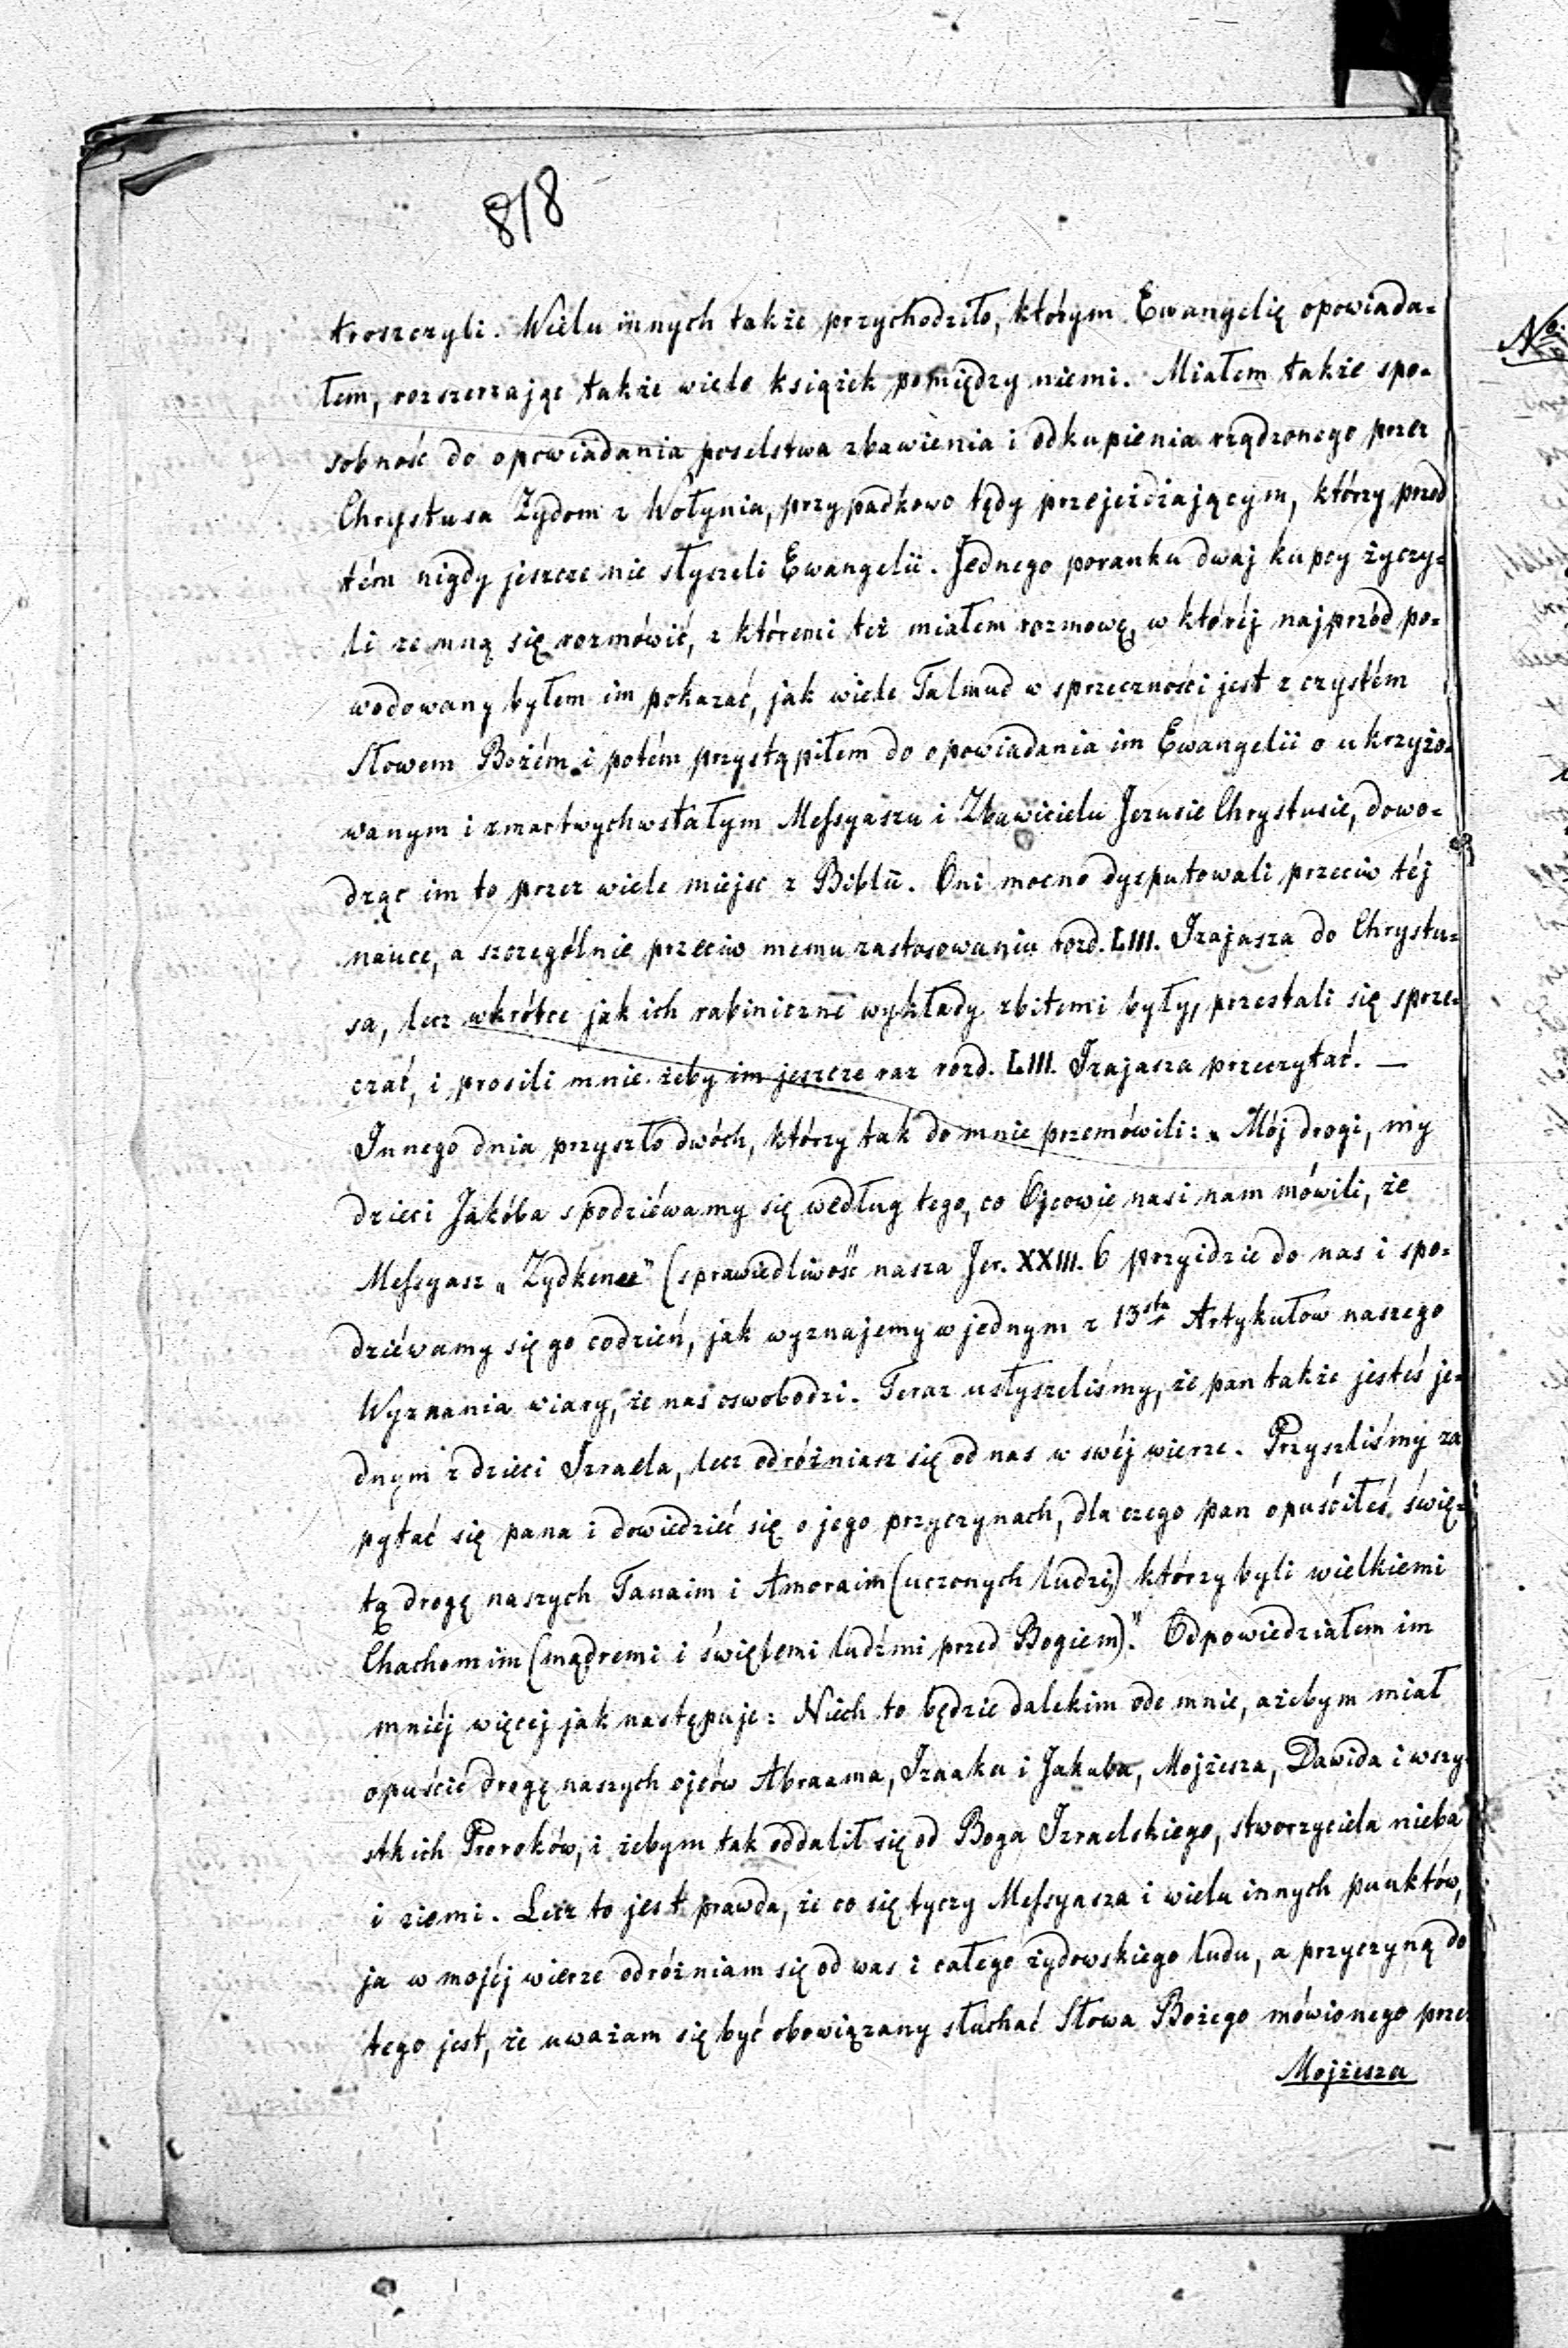 818
troszczyli. Wielu innych także przychodziło, którym Ewangelię opowiada=
łem, rozszerzając także wiele książek pomiędzy niemi. Miałem także spo=
sobność do opowiadania poselstwa zbawienia i odkupienia rządzonego przez
Chrystusa Żydom z Wołynia, przypadkowo tędy przejeżdżającym, którzy przed
tém nigdy jeszcze nie słyszeli Ewangelii. Jednego poranku dwaj kupcy życzy=
li ze mną się rozmówić, z któremi też miałem rozmowę, w któréj najprzód po=
wodowany byłem im pokazać, jak wiele Talmud w sprzeczności jest z czystém
Słowem Bożém i potém przystąpiłem do opowiadania im Ewangelii o ukrzyżo=
wanym i zmartwychwstałym Messyaszu i Zbawicielu Jezusie Chrystusie, dowo=
dząc im to przez wiele miejsc z Biblii. Oni mocno dysputowali przeciw téj
nauce, a szczególnie przeciw memu zastosowaniu rozd. LIII. Izajasza do Chrystu=
sa, lecz wkrótce jak ich rabiniczne wykłady zbitemi były, przestali się sprze=
czać, i prosili mnie żeby im jeszcze raz rozd. LIII. Izajasza przeczytać. —
Innego dnia przyszło dwóch, którzy tak do mnie przemówili: „Mój drogi, my
dzieci Jakóba spodziéwamy się według tego, co Ojcowie nasi nam mówili, że
Messyasz „Zydkenee" (sprawiedliwość nasza Jer. XXIII. 6 przyidzie do nas i spo=
dziéwamy się go codzień, jak wyznajemy w jednym z 13sta Artykułow naszego
Wyznania wiary, że nas oswobodzi. Teraz usłyszeliśmy, że pan także jesteś je=
dnym z dzieci Izraela, lecz odróżniasz się od nas w swéj wierze. Przyszliśmy za
pytać się pana i dowiedzieć się o jego przyczynach, dla czego pan opuściłeś świę=
tą drogę naszych Tanaim i Amoraim (uczonych ludzi) którzy byli wielkiemi
Chachomim (mądremi i świętemi ludźmi przed Bogiem)." Odpowiedziałem im
mniéj więcej jak następuje: Niech to będzie dalekim ode mnie, ażebym miał
opuścić drogę naszych ojców Abraama, Izaaka i Jakuba, Mojżesza, Dawida i wszy=
stkich Proroków, i żebym tak oddalił się od Boga Izraelskiego, stworzyciela nieba
i ziemi. Lecz to jest prawda, że co się tyczy Messyasza i wielu innych punktów,
ja w mojéj wierze odróżniam się od was i całego żydowskiego ludu, a przyczyną do
tego jest, że uważam się być obowiązany słuchać Słowa Bożego mówionego prze
Mojżesza
No.